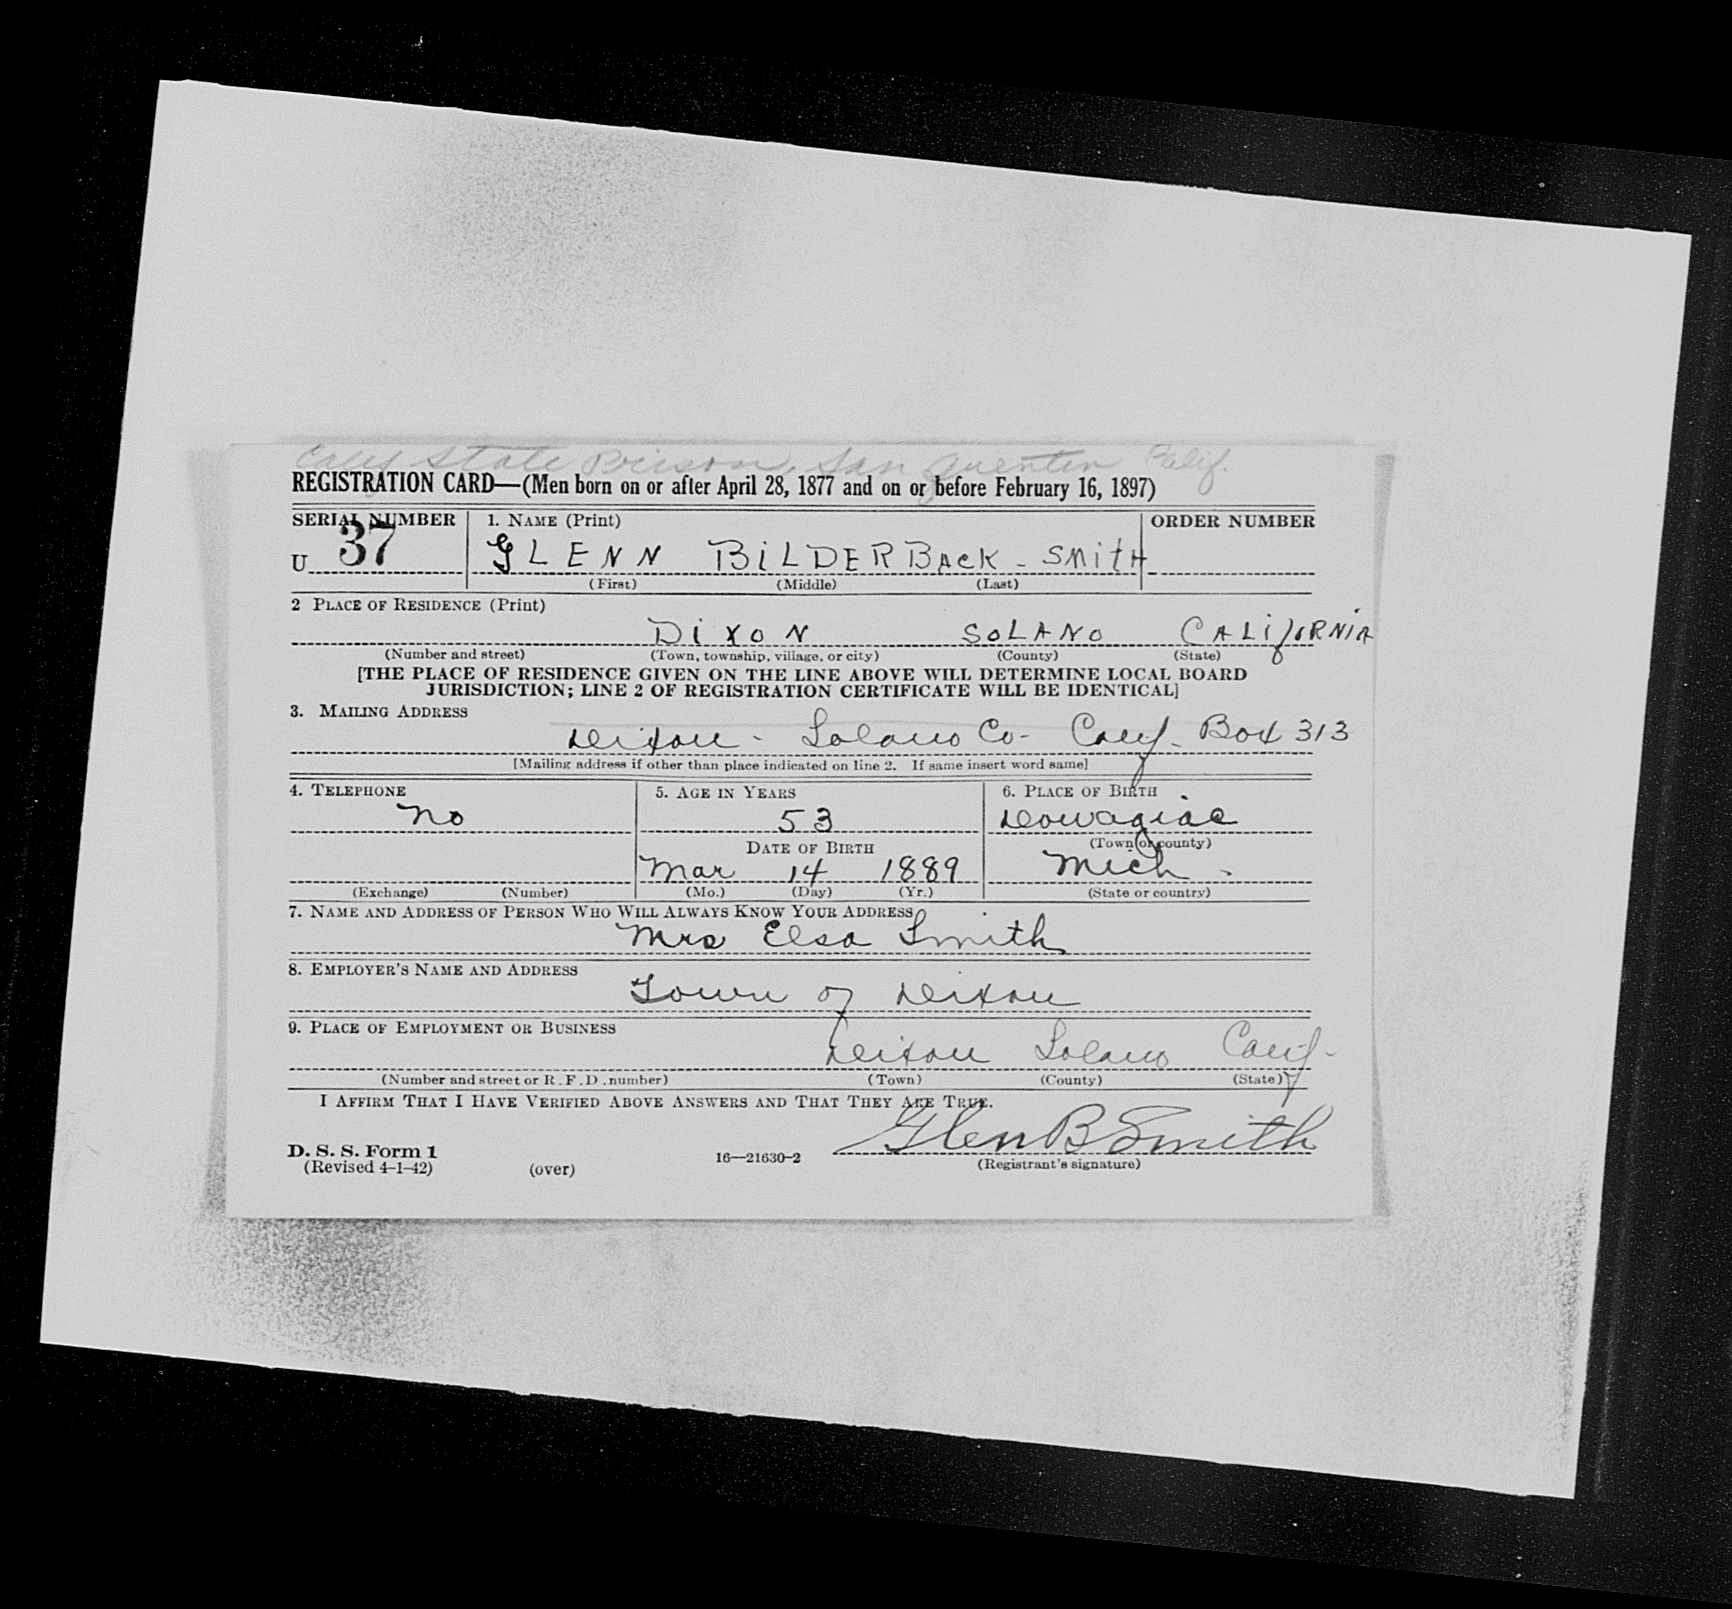 Calif State Prison, San Quentin Calif.
REGISTRATION CARD—(Men born on or after April 28, 1877 and on or before February 16, 1897)
SERIAL NUMBER 1. NAME (Print) ORDER NUMBER
U 37 GLENN BiLDERBACK - SMitH
(First) (Middle) (Last)
2 PLACE OF RESIDENCE (Print)
DiXON SOLANO CALifORNiA
(Number and street) (Town, township, village, or city) (County) (State)
[THE PLACE OF RESIDENCE GIVEN ON THE LINE ABOVE WILL DETERMINE LOCAL BOARD
JURISDICTION; LINE 2 OF REGISTRATION CERTIFICATE WILL BE IDENTICAL]
3. MAILING ADDRESS
Dixon - Solano Co - Calif. Box 313
[Mailing address if other than place indicated on line 2. If same insert word same]
4. TELEPHONE 5. AGE IN YEARS 6. PLACE OF BIRTH
No 53 Dowagiac
DATE OF BIRTH (Town or county)
Mar 14 1889 Mich.
(Exchange) (Number) (Mo.) (Day) (Yr.) (State or country)
7. NAME AND ADDRESS OF PERSON WHO WILL ALWAYS KNOW YOUR ADDRESS
Mrs Elsa Smith
8. EMPLOYER'S NAME AND ADDRESS
Town of Dixon
9. PLACE OF EMPLOYMENT OR BUSINESS
Dixon Solano Calif-
(Number and street or R.F.D. number) (Town) (County) (State)
I AFFIRM THAT I HAVE VERIFIED ABOVE ANSWERS AND THAT THEY ARE TRUE.
Glen B Smith
D. S. S. Form 1
(Revised 4-1-42) (over) 16—21630-2 (Registrant's signature)